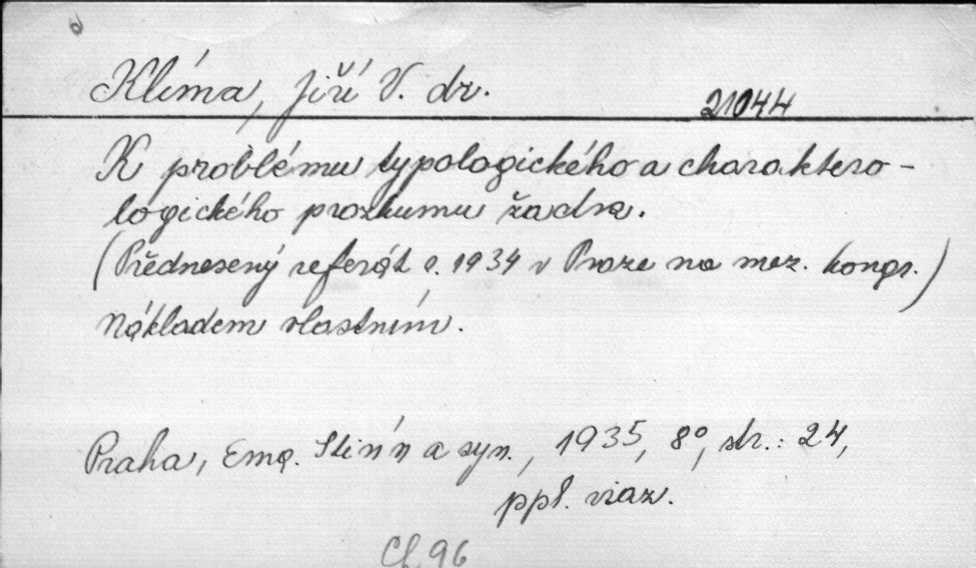 Klíma, Jiří V. dr.
21044
K problému typologického a charaktero-
logického prozkumu žadra.
(Přednesený referát r. 1934 v Praze na mez. kongr.)
Nákladem vlastním.
Praha, Ema. Stivín a syn., 1935, 8°, str.: 24,
ppl. viaz.